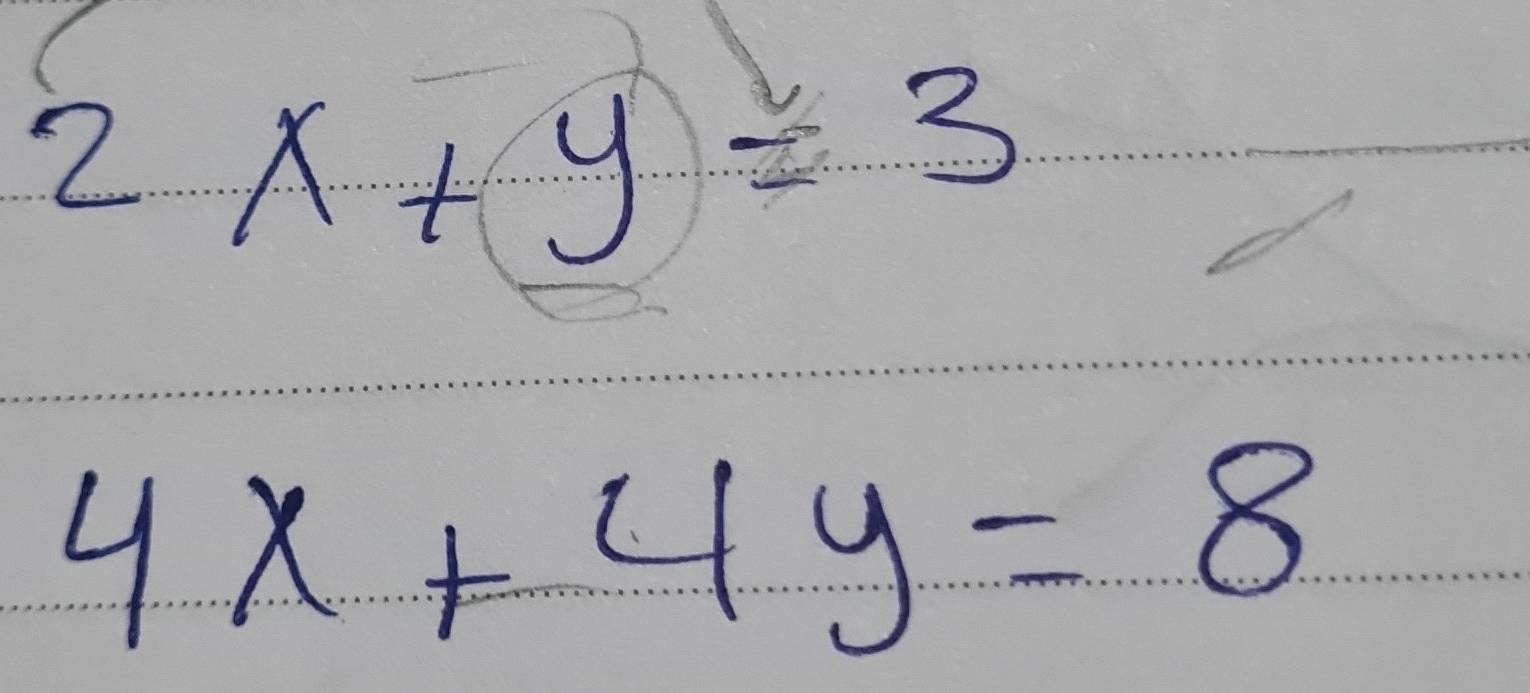 2x + y = 3
4x + 4y = 8